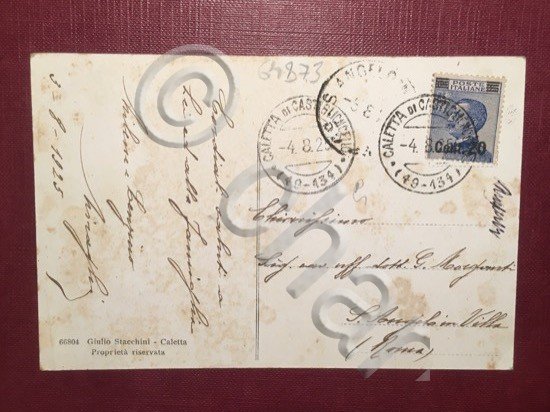 64873
3-8-1925
Cordiali saluti a
Lei ed alla famiglia
66804 Giulio Stacchini - Caletta
Proprietà riservata
CALETTA DI CASTIGLIONCELLO
-4.8.25
(49-134)
S. ANGELO
CALETTA DI CASTIGLIONCELLO
-4.8
(49-134)
POSTE
ITALIANE
Cent. 20
Chiarissimo
Sig. cav. uff. dott. G. Morganti
S. Angelo in Villa
(Roma)
©